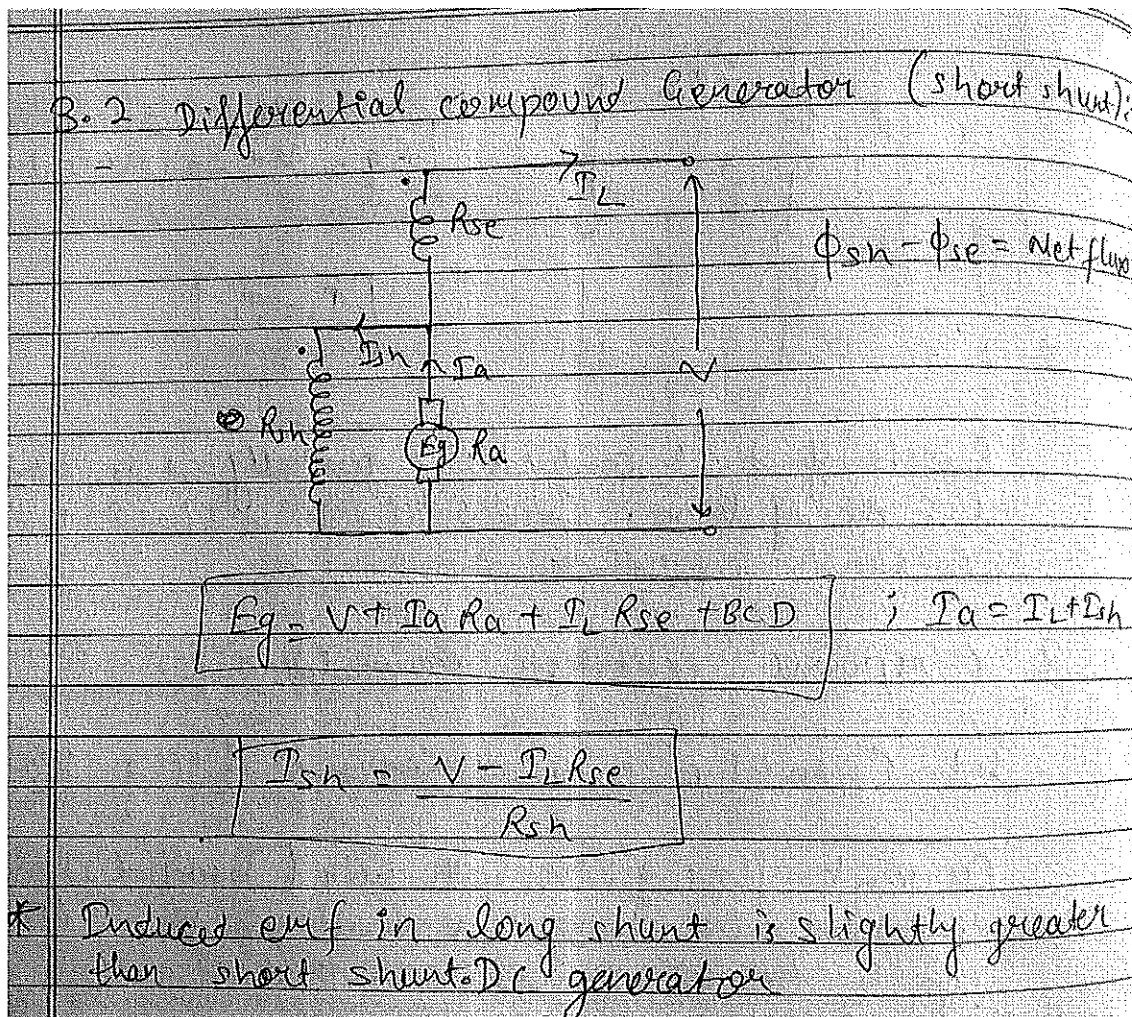 3.2 Differential compound Generator (short shunt):
IL
Rse
ϕsh - ϕse = Net flux
Ish
Ia
V
Rsh
Eg
Ra
Eg = V + Ia Ra + IL Rse + BCD ; Ia = IL + Ish
Ish = V - IL Rse
Rsh
* Induced emf in long shunt is slightly greater
than short shunt. DC generator